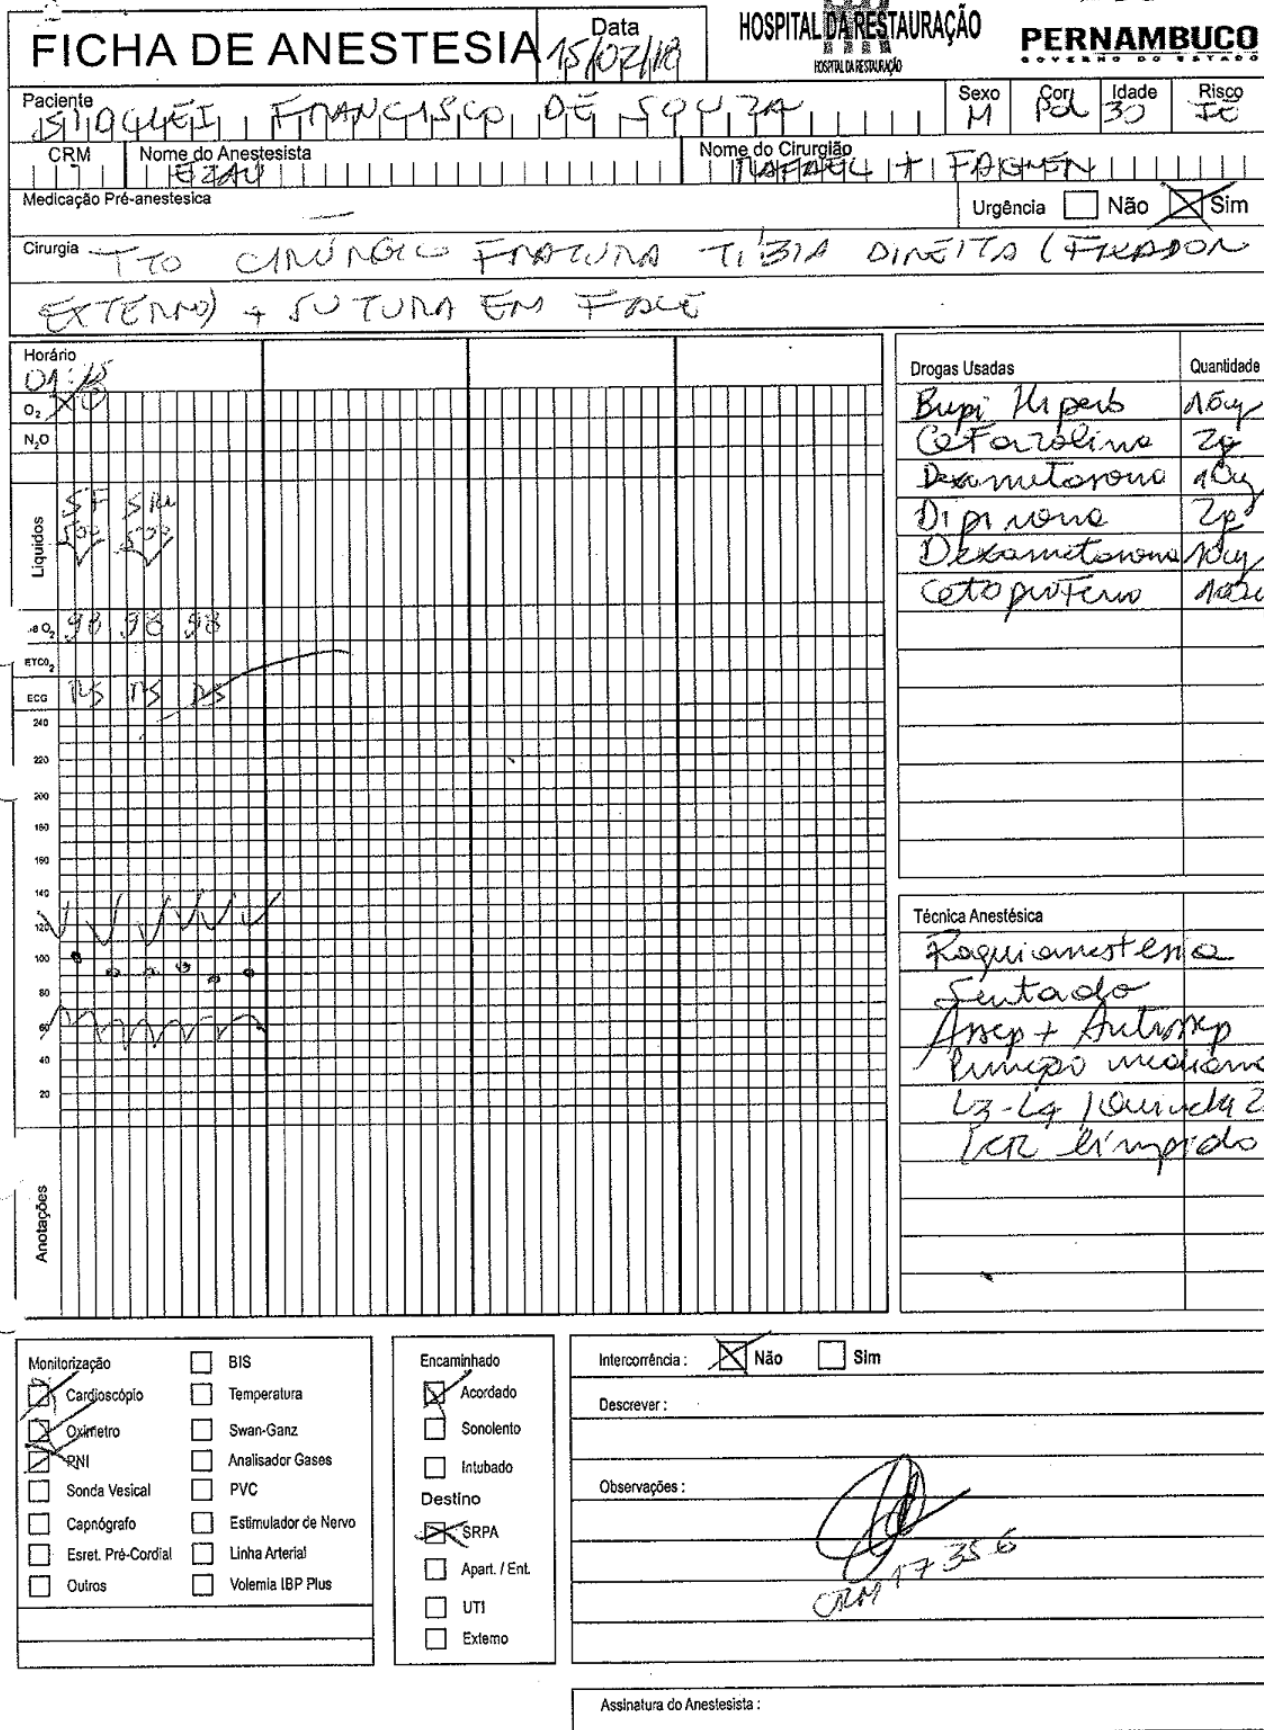 FICHA DE ANESTESIA
Data
15/07/18
HOSPITAL DA RESTAURAÇÃO
HOSPITAL DA RESTAURAÇÃO
PERNAMBUCO
GOVERNO DO ESTADO
Paciente
FRANCISCO DE SOUZA
Sexo
M
Cor
Idade
30
Risco
CRM
Nome do Anestesista
EZAU
Nome do Cirurgião
RAFAEL +
Medicação Pré-anestesica
—
Urgência Não Sim
Cirurgia TTO CIRÚRGICO FRATURA TIBIA DIREITA (FIXADOR
EXTERNO) + SUTURA EM FACE
Horário
01:15
O2
N2O
Líquidos
SF SRL
500 500
O2 98 98 98
ETCO2
ECG RS RS RS
240
220
200
180
160
140
120
100
80
60
40
20
Anotações
Drogas Usadas Quantidade
Bupi Hiperb 15mg
Cefazolina 2g
Dexametasona 10mg
Dipirona 2g
Dexametasona 10mg
Cetoprofeno
Técnica Anestésica
Raquianestesia
Sentado
Assep + Antissep
Punção mediana
L3-L4
LCR límpido
Monitorização
Cardioscópio
Oxímetro
PNI
Sonda Vesical
Capnógrafo
Esret. Pré-Cordial
Outros
BIS
Temperatura
Swan-Ganz
Analisador Gases
PVC
Estimulador de Nervo
Linha Arterial
Volemia IBP Plus
Encaminhado
Acordado
Sonolento
Intubado
Destino
SRPA
Apart. / Ent.
UTI
Externo
Intercorrência : Não Sim
Descrever :
Observações :
CRM 17356
Assinatura do Anestesista :